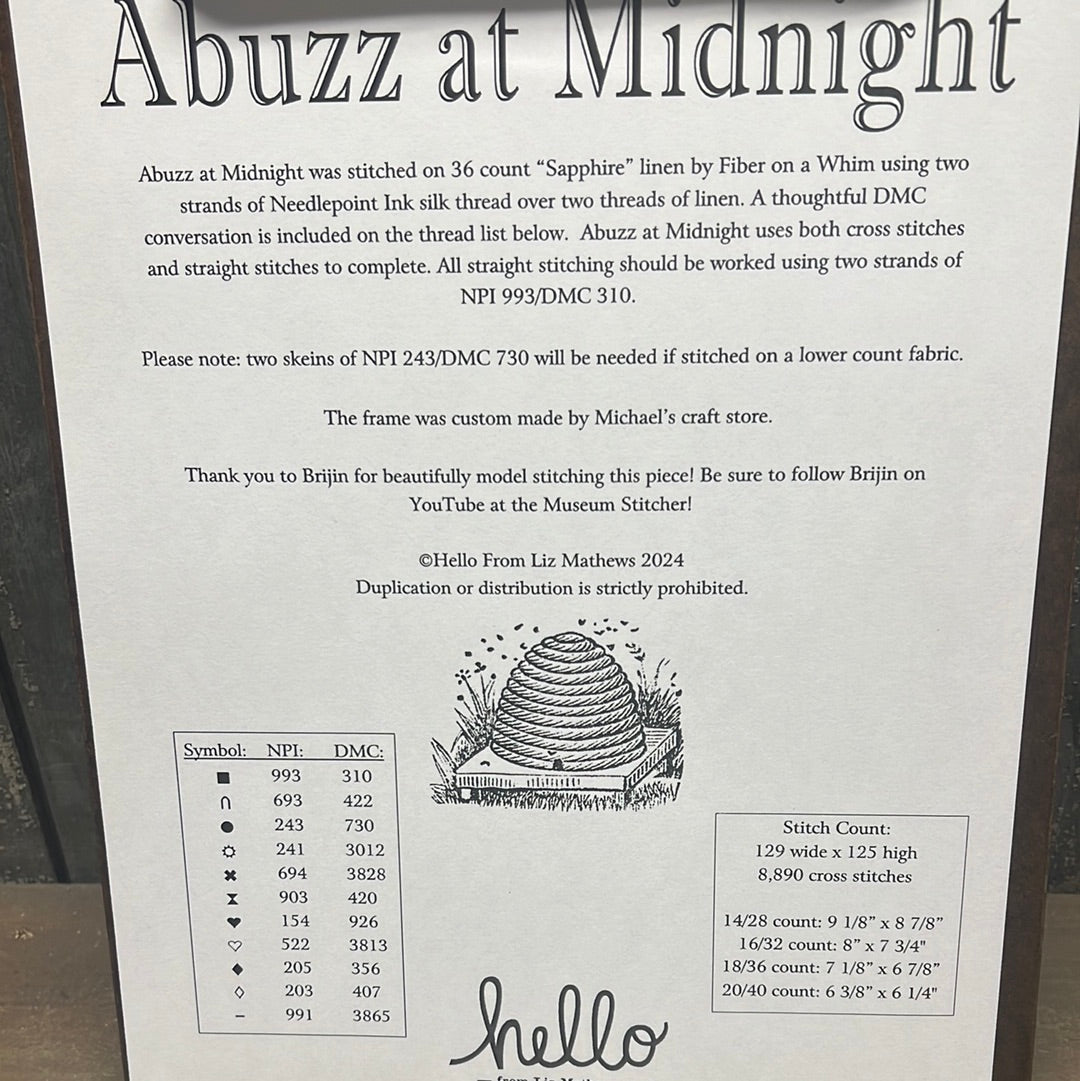 Abuzz at Midnight
Abuzz at Midnight was stitched on 36 count “Sapphire” linen by Fiber on a Whim using two
strands of Needlepoint Ink silk thread over two threads of linen. A thoughtful DMC
conversation is included on the thread list below. Abuzz at Midnight uses both cross stitches
and straight stitches to complete. All straight stitching should be worked using two strands of
NPI 993/DMC 310.
Please note: two skeins of NPI 243/DMC 730 will be needed if stitched on a lower count fabric.
The frame was custom made by Michael’s craft store.
Thank you to Brijin for beautifully model stitching this piece! Be sure to follow Brijin on
YouTube at the Museum Stitcher!
©Hello From Liz Mathews 2024
Duplication or distribution is strictly prohibited.
Symbol: NPI: DMC:
■ 993 310
∩ 693 422
● 243 730
☼ 241 3012
✖ 694 3828
⧗ 903 420
♥ 154 926
♡ 522 3813
◆ 205 356
◊ 203 407
– 991 3865
Stitch Count:
129 wide x 125 high
8,890 cross stitches
14/28 count: 9 1/8” x 8 7/8”
16/32 count: 8” x 7 3/4"
18/36 count: 7 1/8” x 6 7/8”
20/40 count: 6 3/8” x 6 1/4"
hello